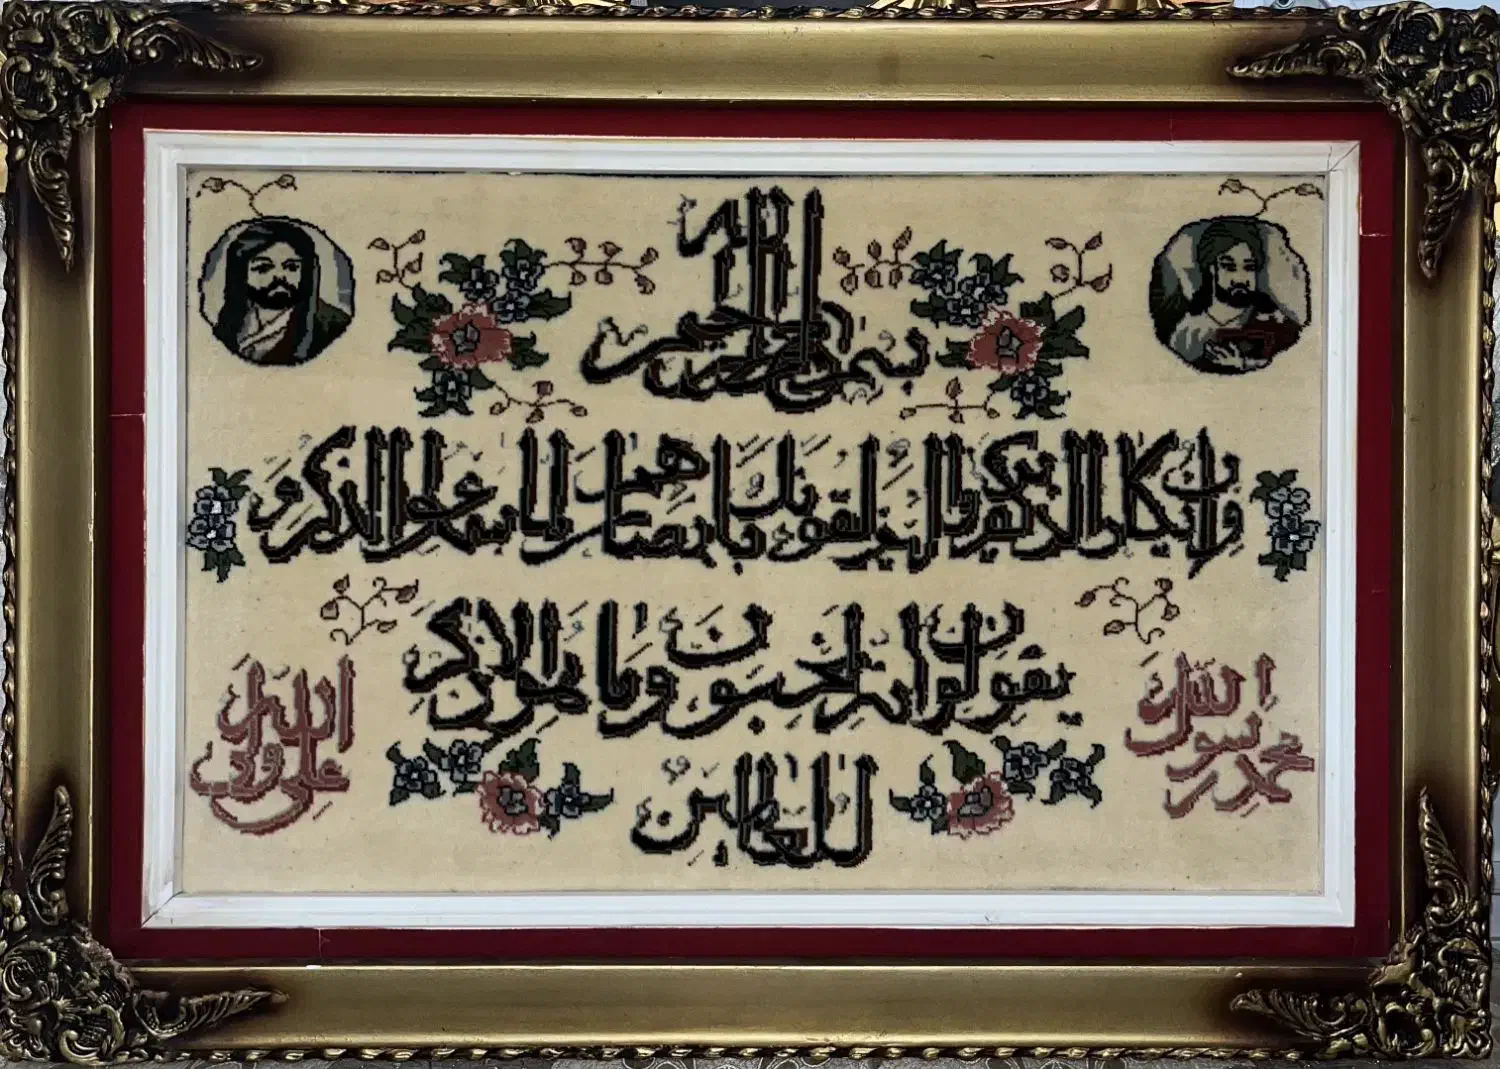 بسم الله الرحمن الرحيم
وَإِن يَكَادُ الَّذِينَ كَفَرُوا لَيُزْلِقُونَكَ بِأَبْصَارِهِمْ لَمَّا سَمِعُوا الذِّكْرَ وَ
يَقُولُونَ إِنَّهُ لَمَجْنُونٌ وَمَا هُوَ إِلَّا ذِكْرٌ
لِلْعَالَمِينَ
محمد رسول الله
علی ولی الله